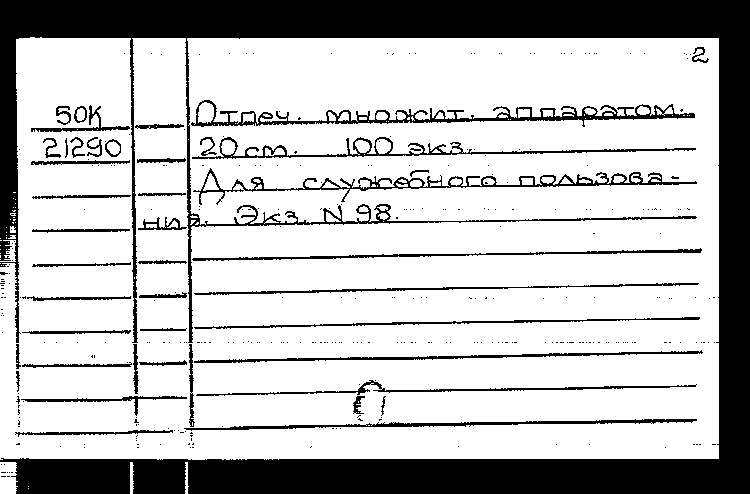 2
50К Отпеч. множит. аппаратом.
21290 20 см. 100 экз.
Для служебного пользова-
ния. Экз. N 98.